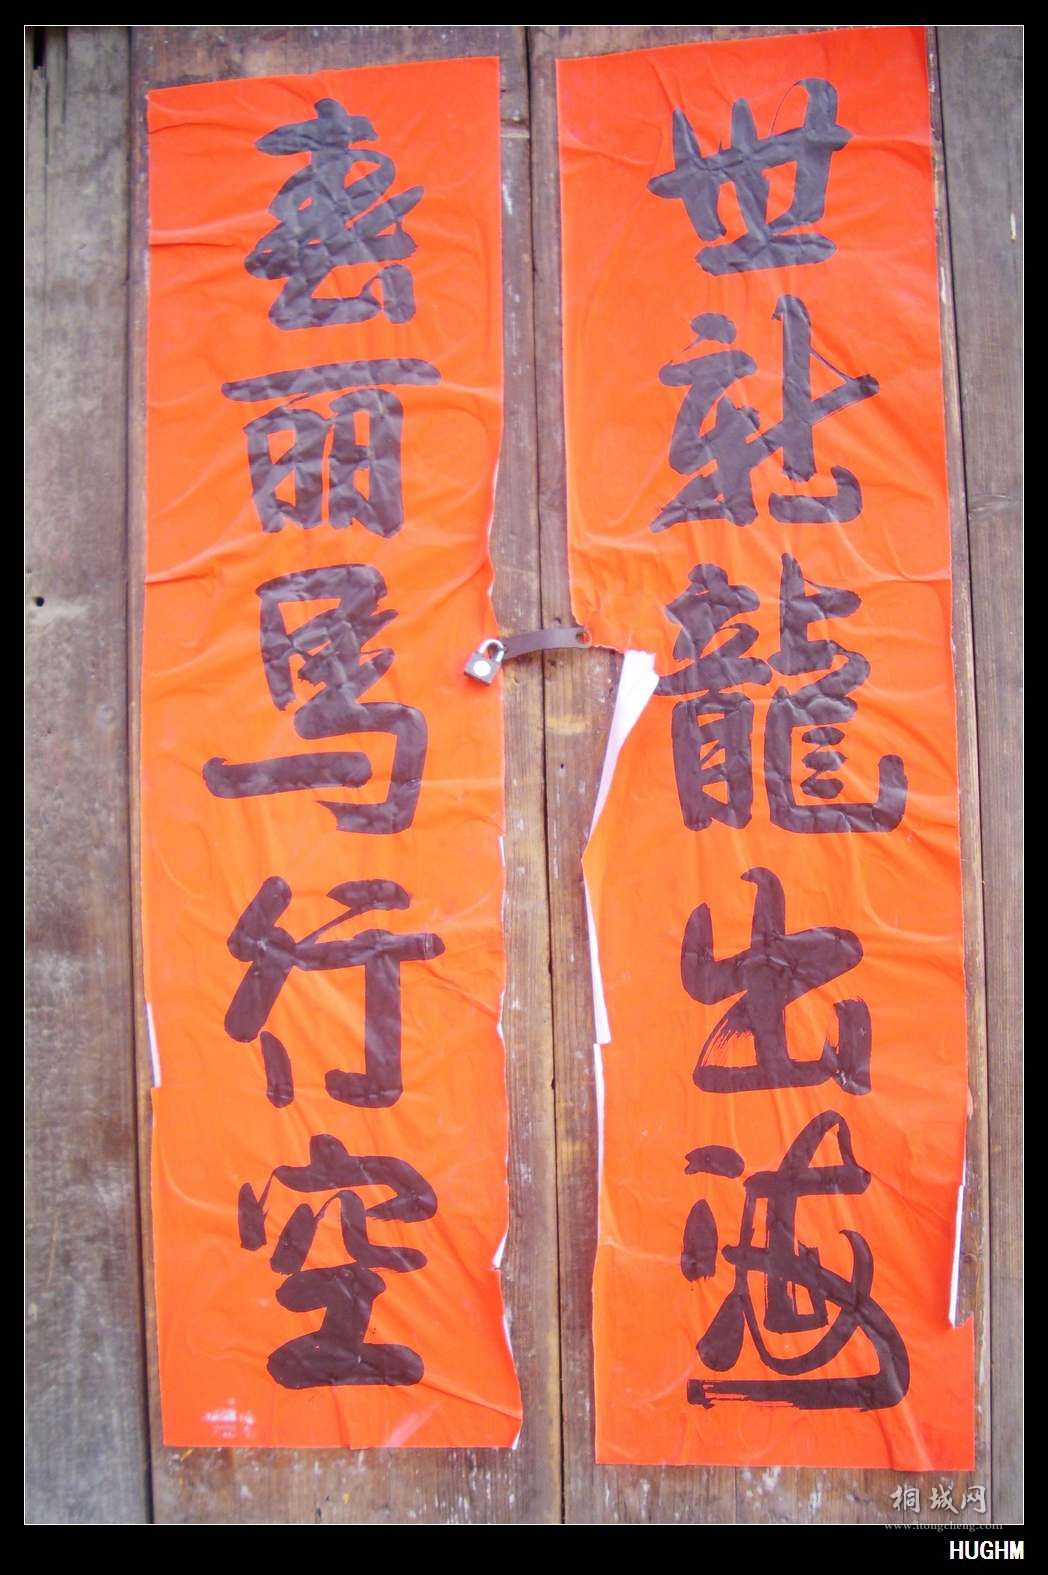 世新龍出海
春丽马行空
桐城网
www.itongcheng.com
HUGHM